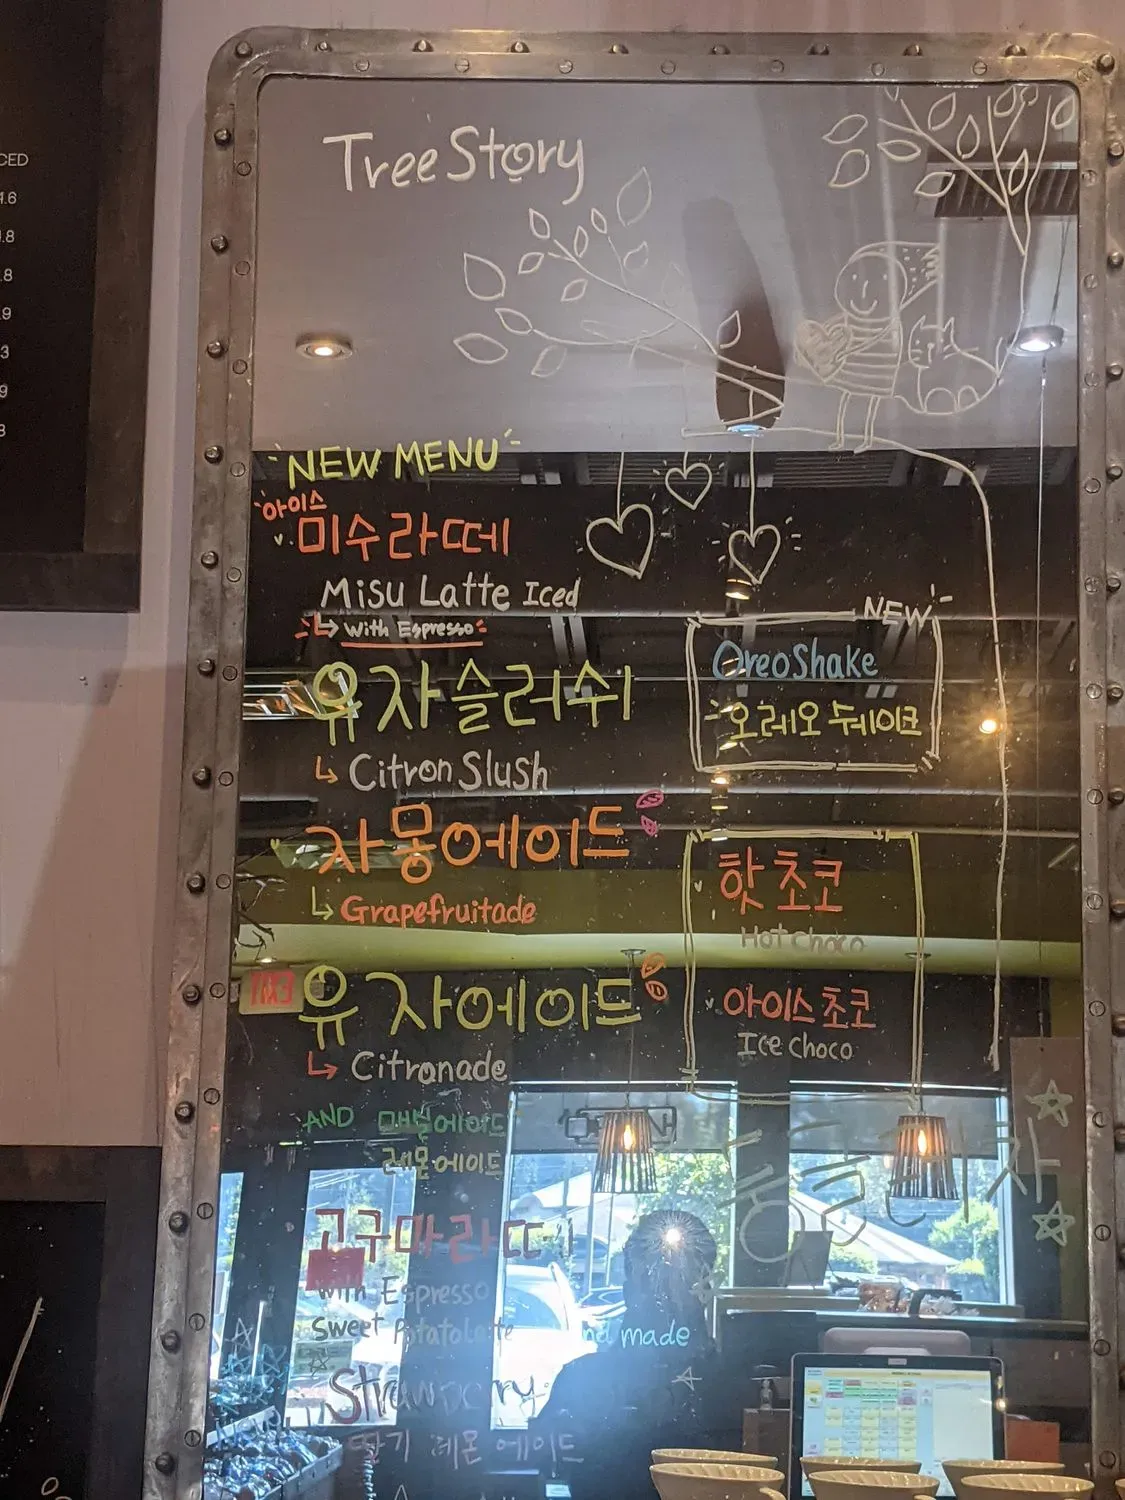 CED
Tree Story
NEW MENU
아이스
미수라떼
Misu Latte Iced
with Espresso
유자슬러쉬
Citron Slush
자몽에이드
Grapefruitade
유자에이드
Citronade
AND 매실에이드
레몬에이드
고구마라떼
with Espresso
Sweet Potato Latte
made
Strawberry
딸기 레몬에이드
NEW
Oreo Shake
오레오 쉐이크
핫초코
Hot choco
아이스초코
Ice choco
EXIT